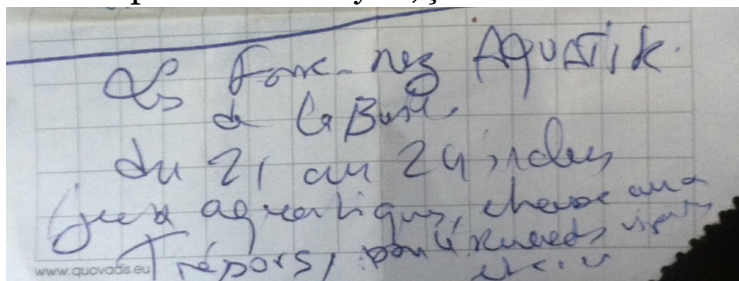 Les Fort-nez AQUATIK.
de la Base
du 21 au 24 inclus
Jeux aquatiques, chasse aux
Trésors,
www.quovadis.eu